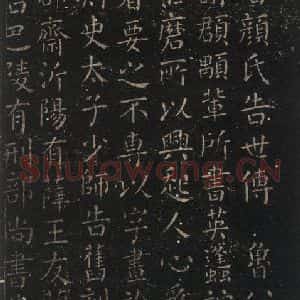 顔氏告世傳魯
頵顒輩所書英蓬
磨所以興起人心
要之不專以字畫
史太子少師告舊刻
齋沂陽有王友
巴陵有刑部尚書
Shufawang.CN